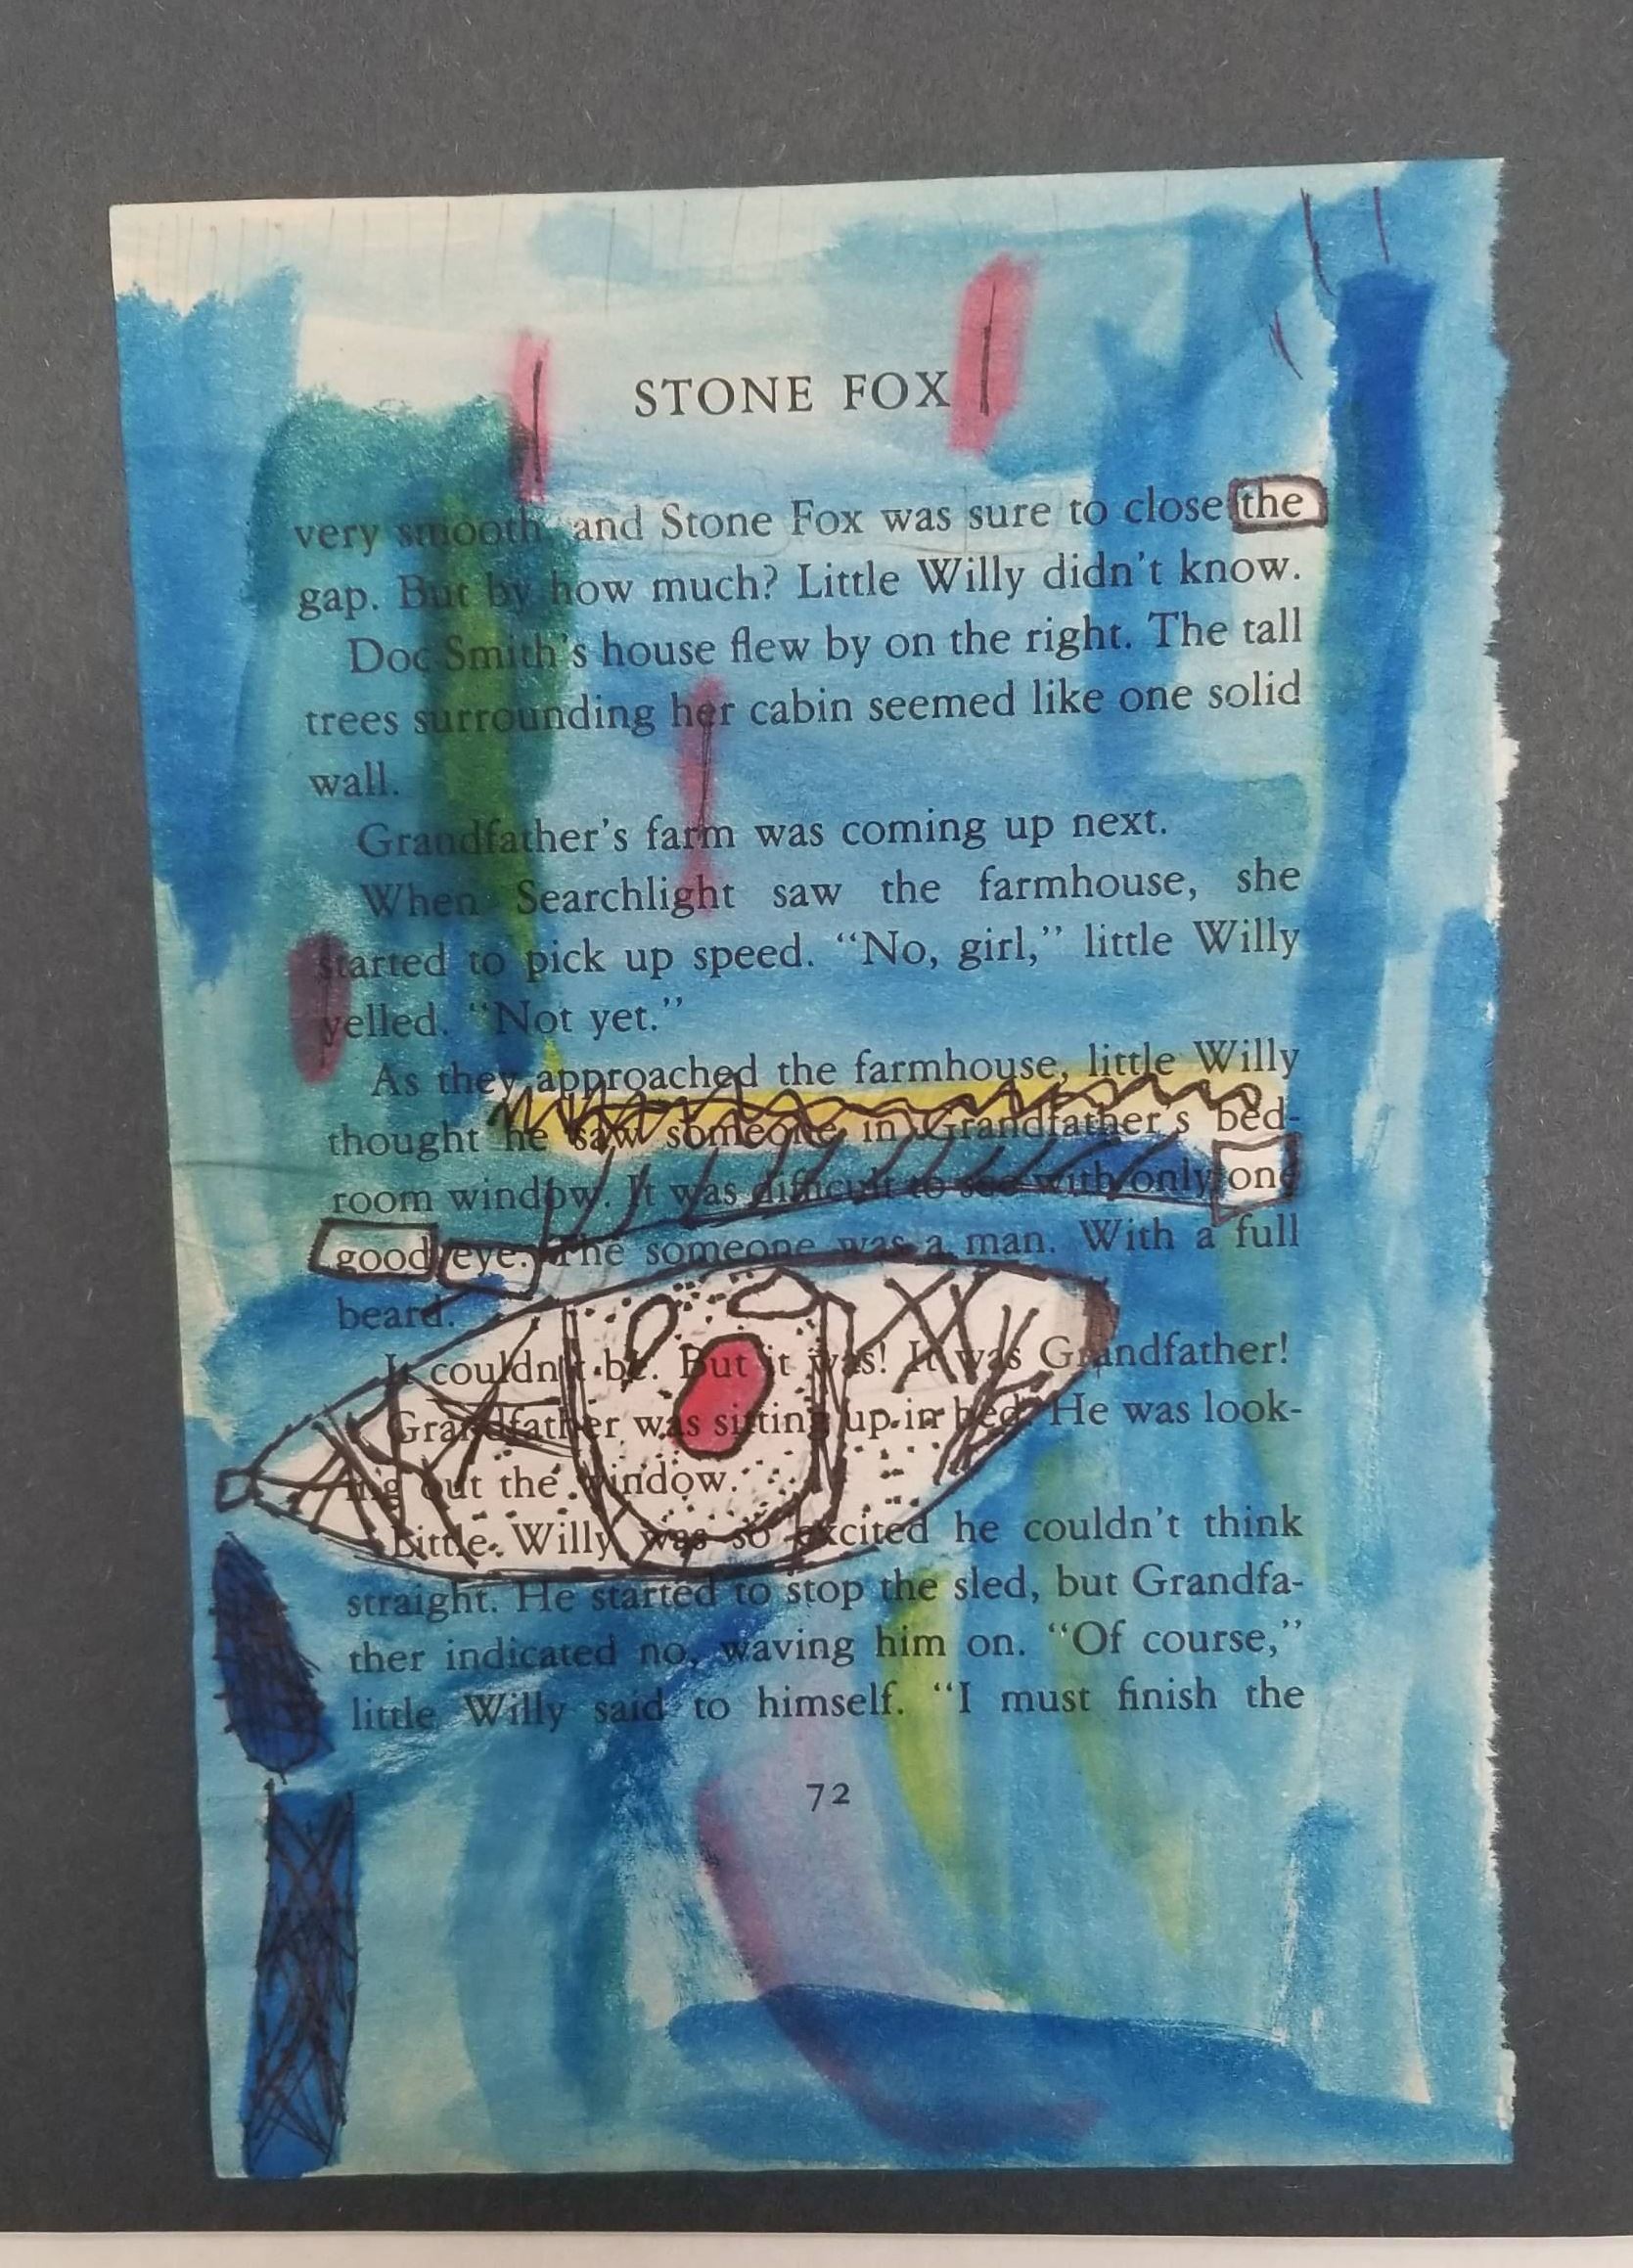 STONE FOX
very smooth, and Stone Fox was sure to close the
gap. But by how much? Little Willy didn't know.
Doc Smith's house flew by on the right. The tall
trees surrounding her cabin seemed like one solid
wall.
Grandfather's farm was coming up next.
When Searchlight saw the farmhouse, she
started to pick up speed. “No, girl,” little Willy
yelled. “Not yet.”
As they approached the farmhouse, little Willy
thought he saw someone in Grandfather's bed-
room window. It was difficult to see with only one
good eye. The someone was a man. With a full
beard.
It couldn't be. But it was! It was Grandfather!
Grandfather was sitting up in bed. He was look-
ing out the window.
Little Willy was so excited he couldn't think
straight. He started to stop the sled, but Grandfa-
ther indicated no, waving him on. “Of course,”
little Willy said to himself. “I must finish the
72